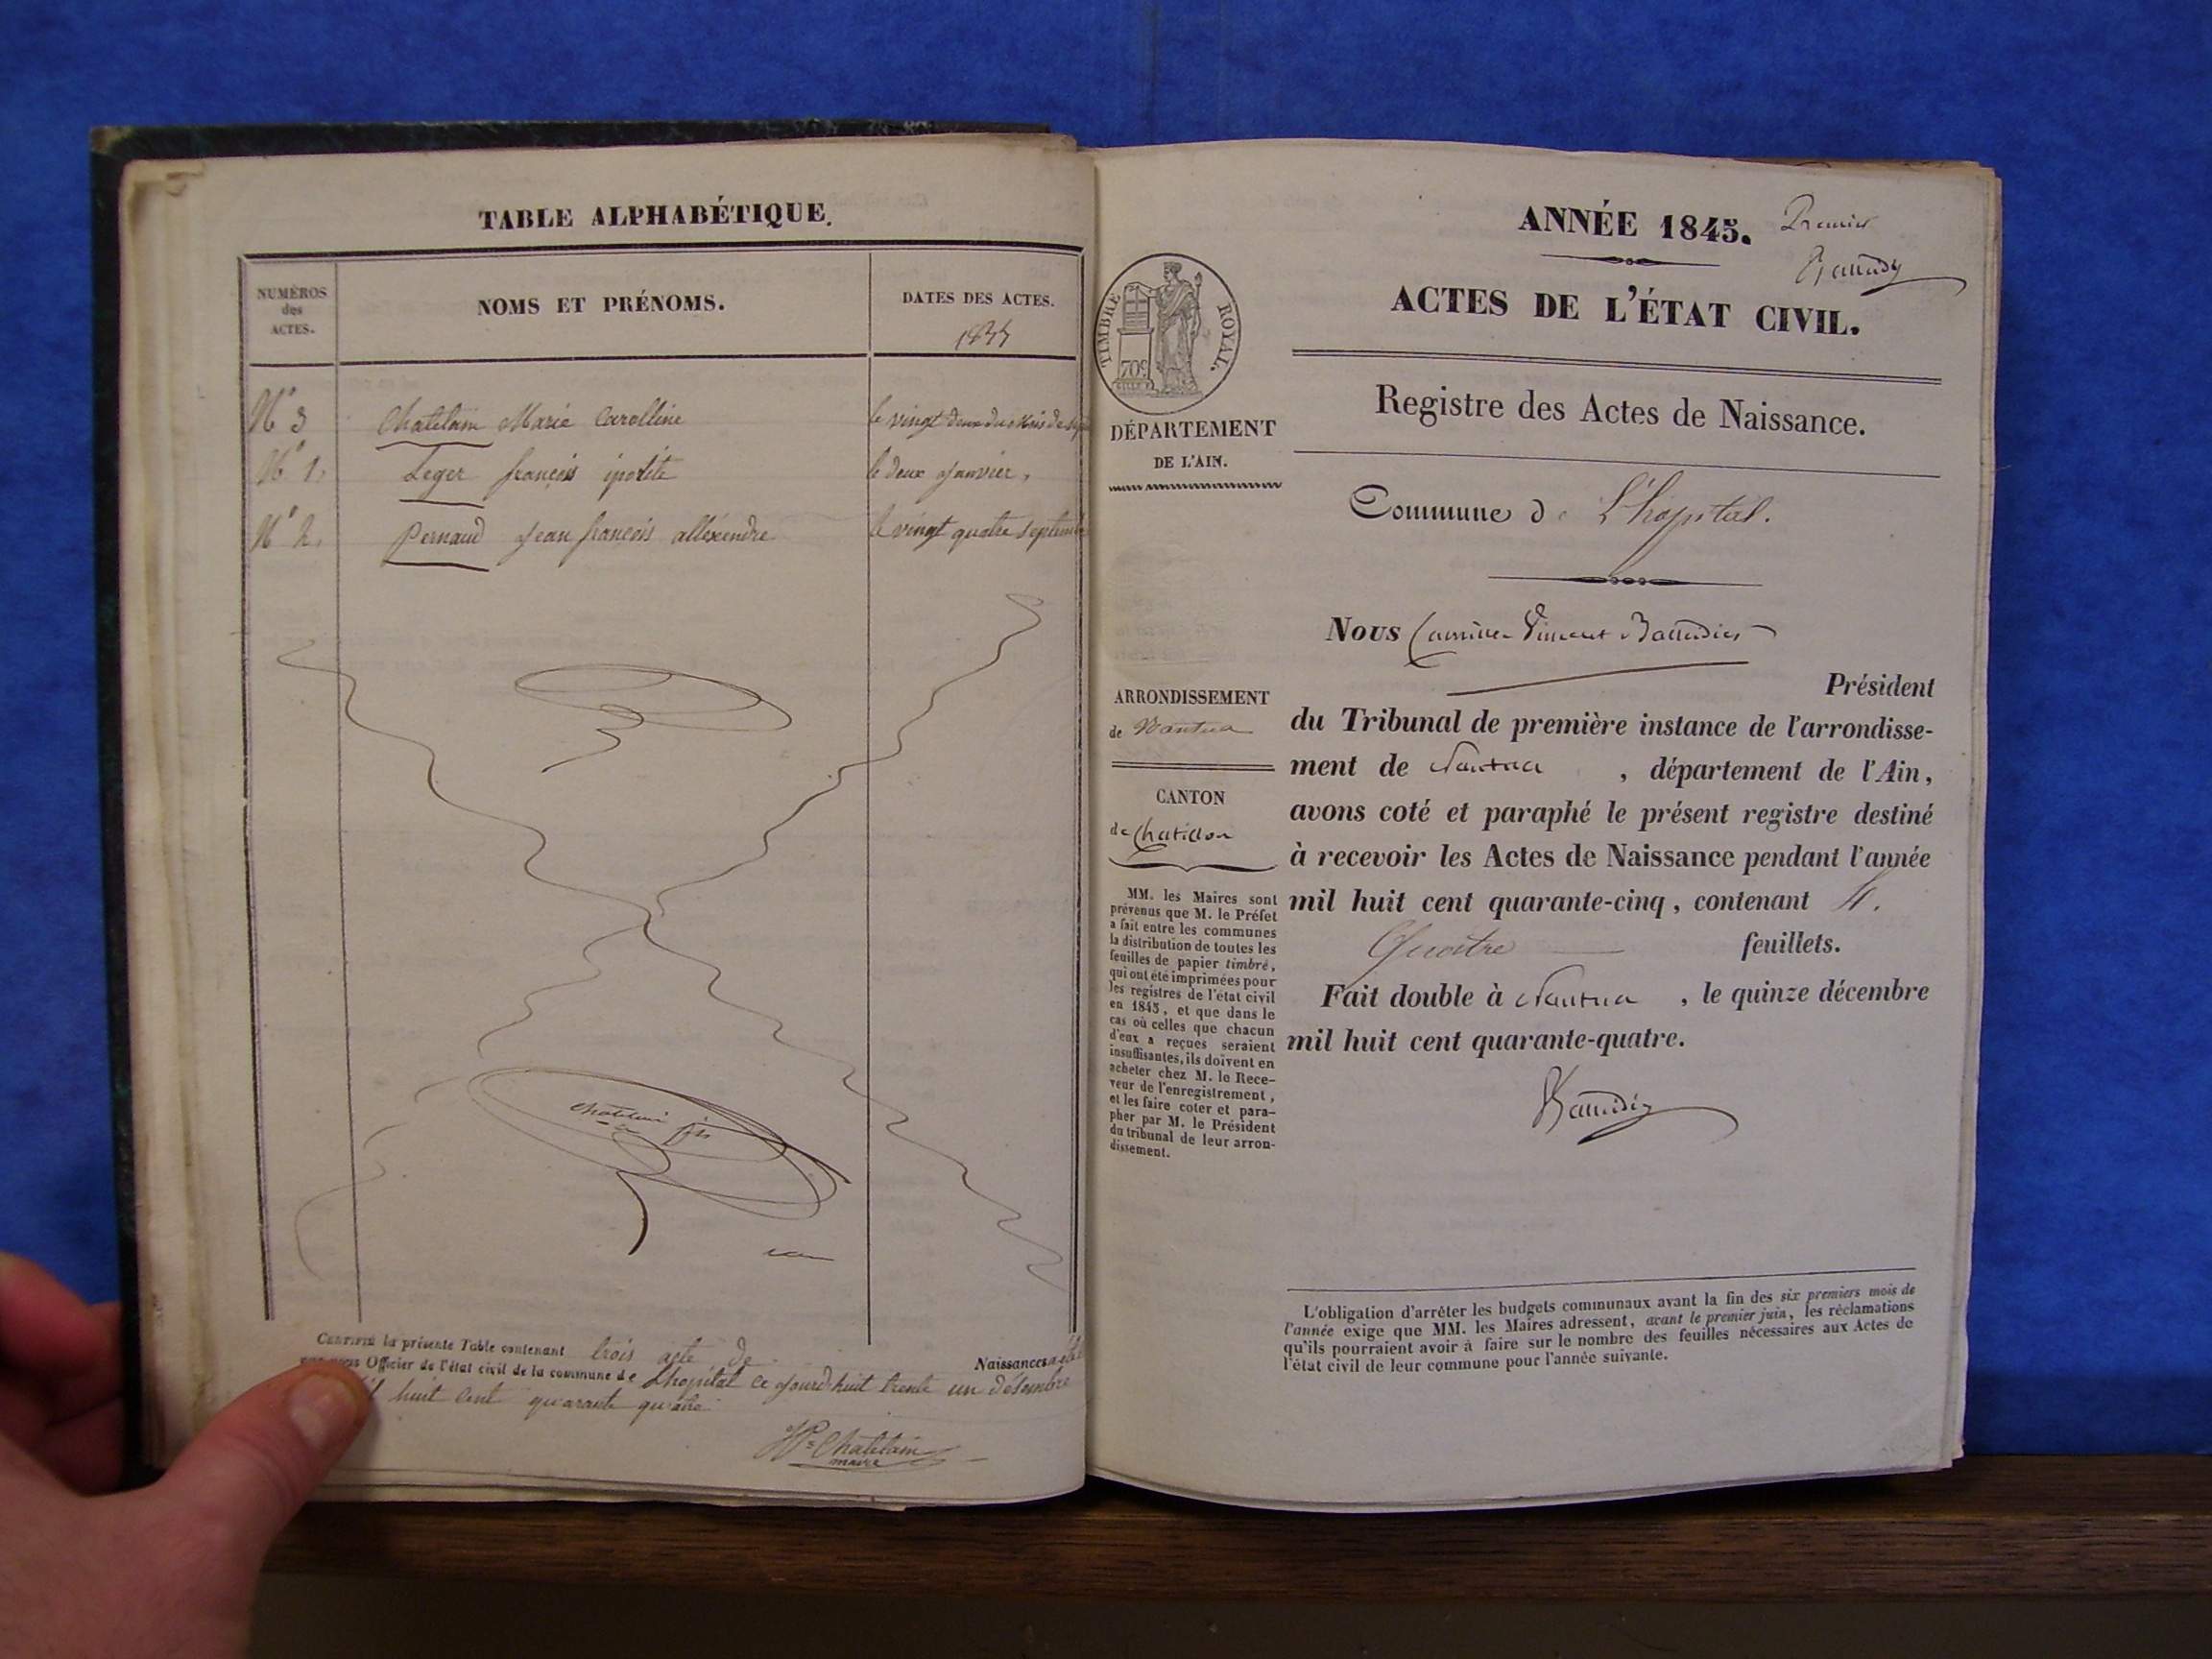 TABLE ALPHABÉTIQUE.
NUMÉROS
des
ACTES.
NOMS ET PRÉNOMS.
DATES DES ACTES.
N° 3 Chatelain Marie Carolline le vingt deux du Mois de
N° 1, Leger françois ipolite le deux Janvier,
N° 2, Pernaud Jean françois alléxendre le vingt quatre septembre
Chatelain fils
CERTIFIÉ la présente Table contenant trois acte de Naissances
par nous Officier de l'état civil de la commune de Lhopital ce Jourd'huit trente un désembre
mil huit Cent quarante quatre
Chatelain
maire
ANNÉE 1845. Premier
ACTES DE L'ÉTAT CIVIL.
TIMBRE ROYAL.
709
DÉPARTEMENT
DE L'AIN.
Registre des Actes de Naissance.
Commune de L'hopital.
Nous Vincent Baudier
Président
ARRONDISSEMENT
de Nantua
du Tribunal de première instance de l'arrondisse-
ment de Nantua , département de l'Ain,
CANTON
de Chatillon
avons coté et paraphé le présent registre destiné
à recevoir les Actes de Naissance pendant l'année
mil huit cent quarante-cinq, contenant 4.
Quatre feuillets.
Fait double à Nantua , le quinze décembre
mil huit cent quarante-quatre.
MM. les Maires sont
prévenus que M. le Préfet
a fait entre les communes
la distribution de toutes les
feuilles de papier timbré,
qui ont été imprimées pour
les registres de l'état civil
en 1845, et que dans le
cas où celles que chacun
d'eux a reçues seraient
insuffisantes, ils doivent en
acheter chez M. le Rece-
veur de l'enregistrement,
et les faire coter et para-
pher par M. le Président
du tribunal de leur arron-
dissement.
L'obligation d'arrêter les budgets communaux avant la fin des six premiers mois de
l'année exige que MM. les Maires adressent, avant le premier juin, les réclamations
qu'ils pourraient avoir à faire sur le nombre des feuilles nécessaires aux Actes de
l'état civil de leur commune pour l'année suivante.